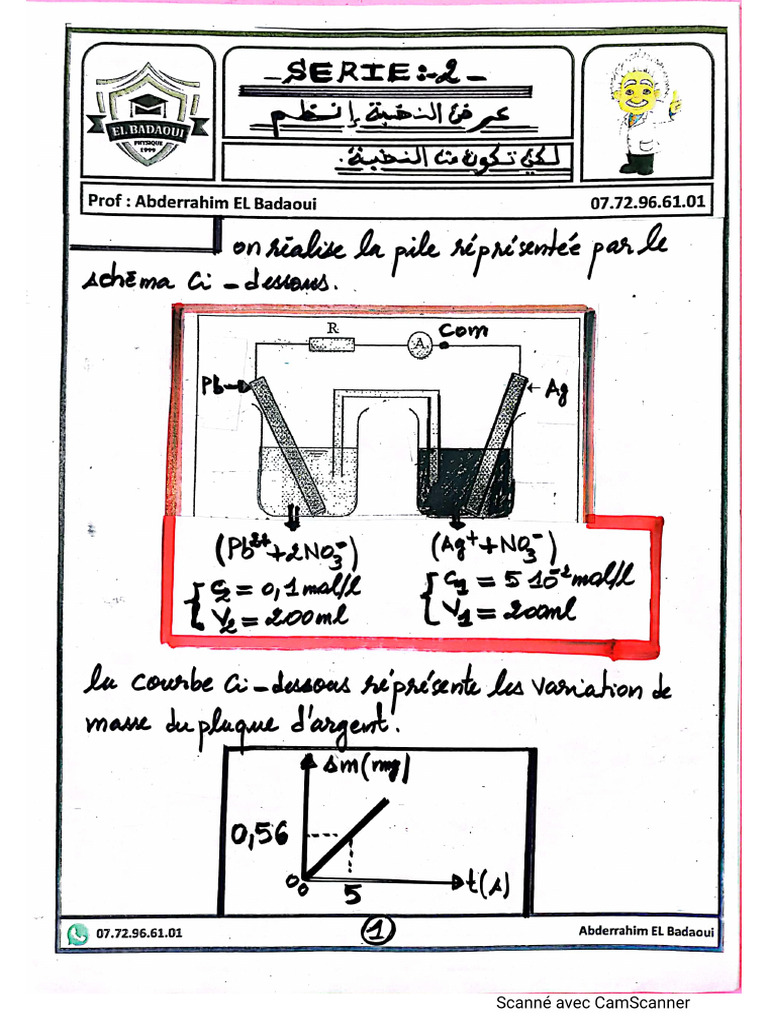 - SERIE:-2 -
EL BADAOUI
PHYSIQUE
1999
عبر عن النخبة إنتظم
لكي تكون من النخبة.
Prof : Abderrahim EL Badaoui 07.72.96.61.01
on réalise la pile réprésentée par le
schéma ci-dessous.
R
A
Com
Pb
Ag
(Pb²⁺+2NO₃⁻) (Ag⁺+NO₃⁻)
C₂ = 0,1mol/l C₁ = 5 10⁻²mol/l
V₂ = 200ml V₁ = 200ml
la courbe ci-dessous réprésente les variation de
masse du plaque d'argent.
Δm(mg)
0,56
0 0
5
t(s)
07.72.96.61.01 1 Abderrahim EL Badaoui
Scanné avec CamScanner